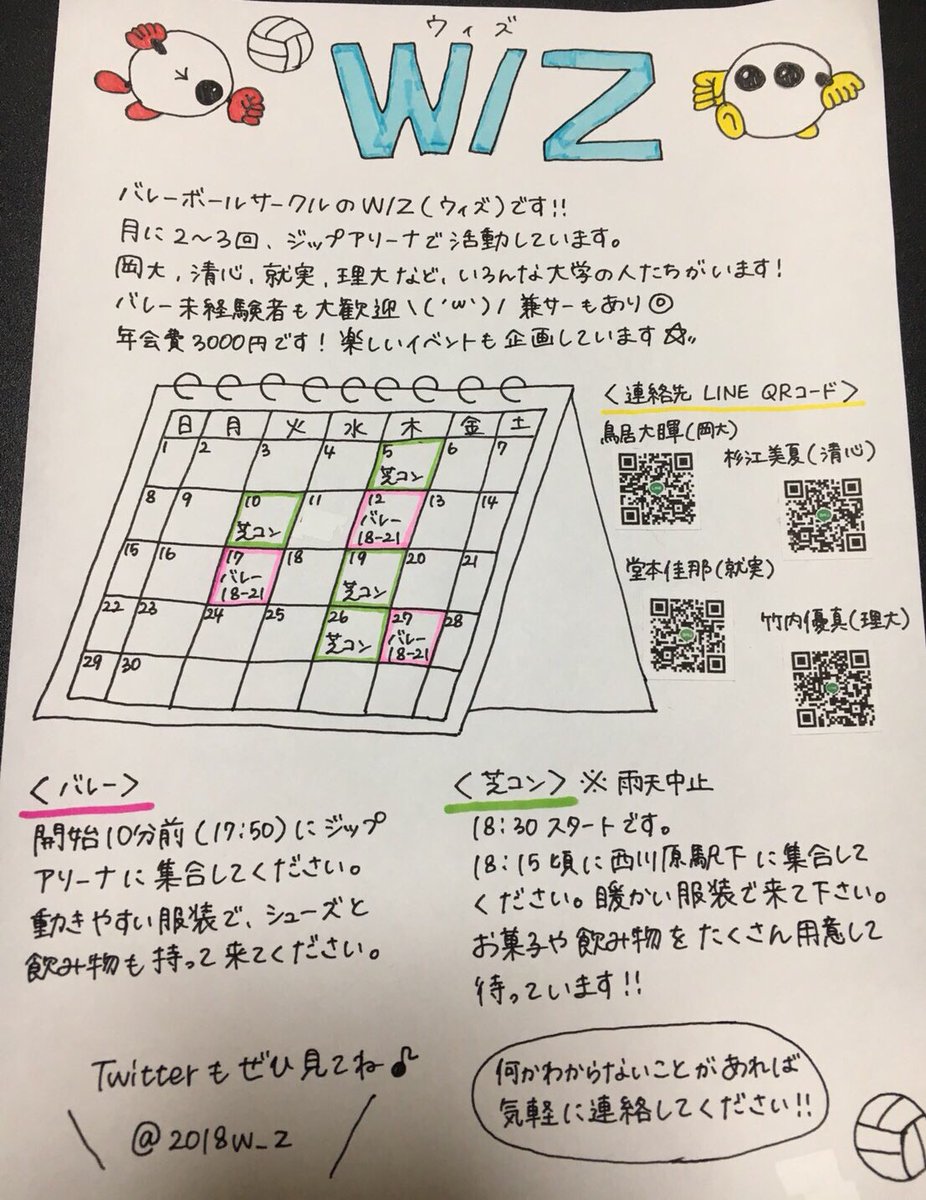 ウィズ
WIZ
バレーボールサークルのWIZ(ウィズ)です!!
月に2〜3回、ジップアリーナで活動しています。
岡大,清心,就実,理大など,いろんな大学の人たちがいます!
バレー未経験者も大歓迎\('ω')/ 兼サーもあり◎
年会費3000円です!楽しいイベントも企画しています☆
日 月 火 水 木 金 土
1 2 3 4 5 6 7
芝コン
8 9 10 11 12 13 14
芝コン バレー
18-21
15 16 17 18 19 20 21
バレー 芝コン
18-21
22 23 24 25 26 27 28
芝コン バレー
18-21
29 30
〈連絡先 LINE QRコード〉
鳥居大暉(岡大)
杉江美夏(清心)
堂本佳那(就実)
竹内優真(理大)
〈バレー〉
開始10分前(17:50)にジップ
アリーナに集合してください。
動きやすい服装で、シューズと
飲み物も持って来てください。
〈芝コン〉※雨天中止
18:30スタートです。
18:15頃に西川原駅下に集合して
ください。暖かい服装で来て下さい。
お菓子や飲み物をたくさん用意して
待っています!!
Twitterもぜひ見てね♪
\ @2018w_z /
何かわからないことがあれば
気軽に連絡してください!!